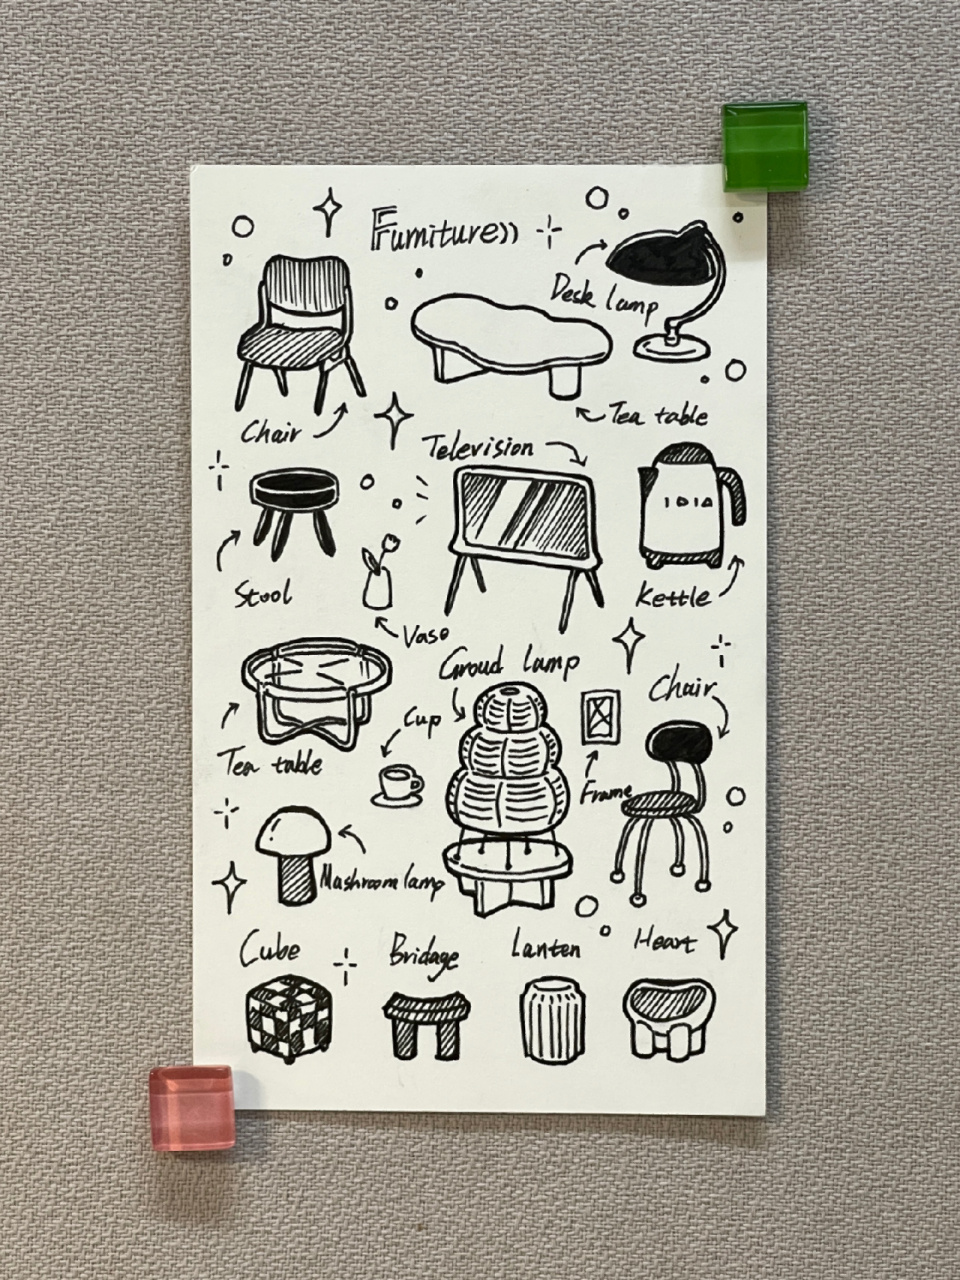 Furniture))
Desk lamp
Chair
Tea table
Television
Stool
Kettle
Vase
Groud lamp
Chair
Cup
Tea table
Frame
Mashroom lamp
Cube
Bridage
Lanten
Heart